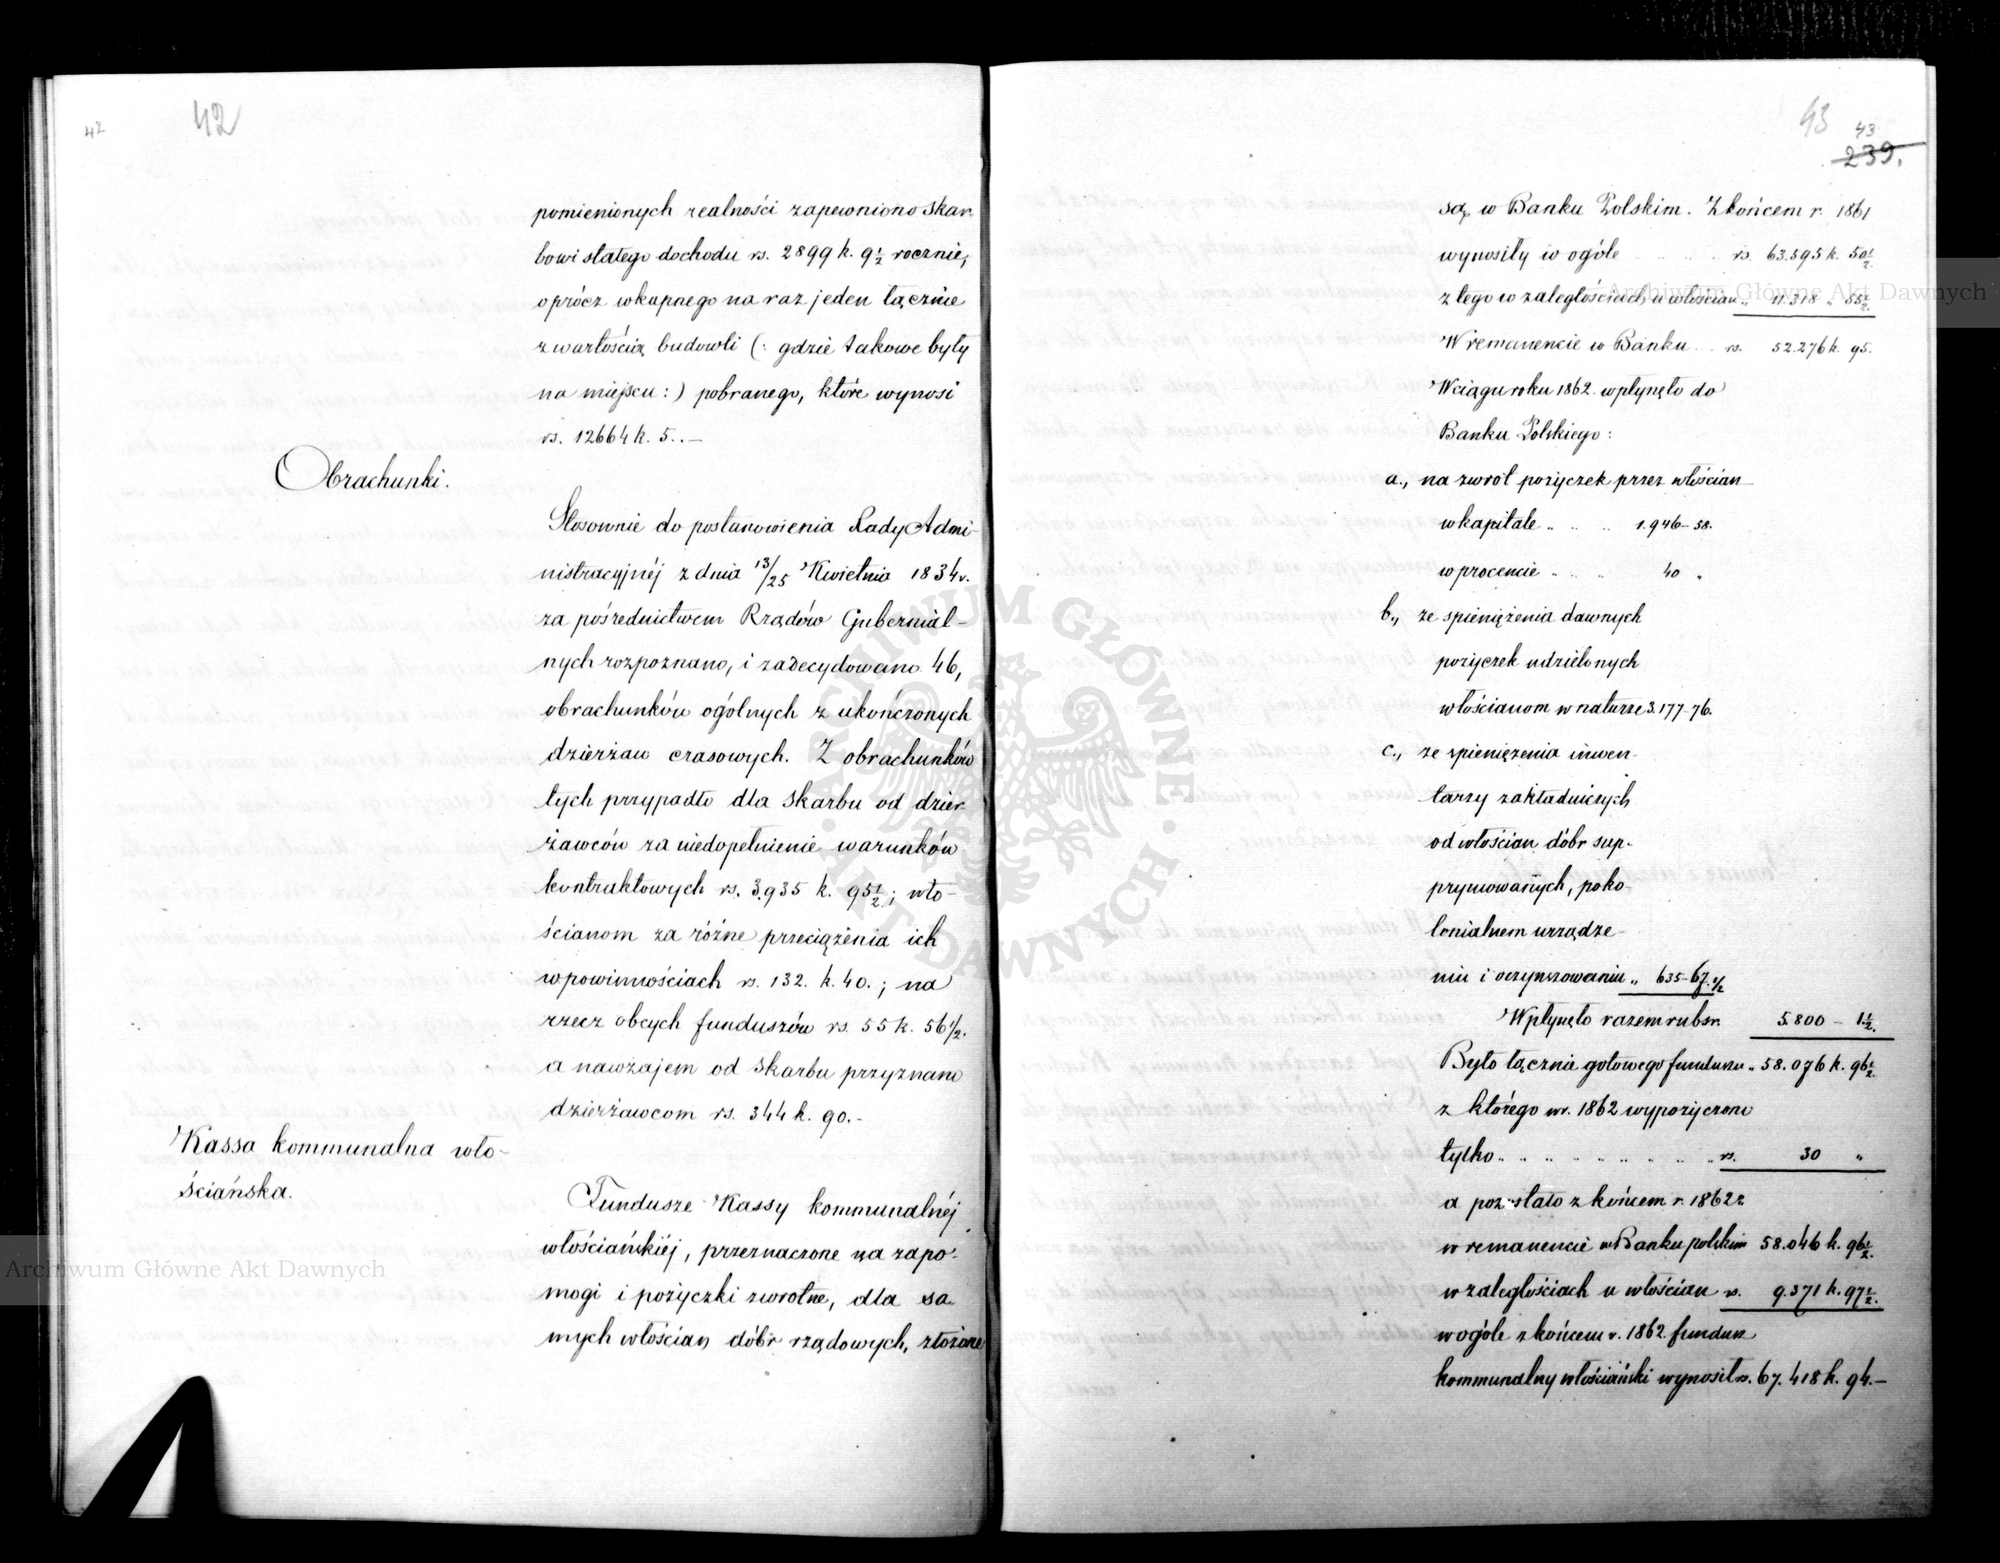 42
42
pomienionych realności zapewniono skar
bowi stałego dochodu rs. 2899 k. 9½ rocznie,
oprócz wkupnego na raz jeden łącznie
z wartością budowli (: gdzie takowe były
na miejscu :) pobranego, które wynosi
rs. 12664 k. 5..—
Obrachunki.
Stosownie do postanowienia Rady Admi-
nistracyjnéj z dnia 13/25 Kwietnia 1834 r.
za pośrednictwem Rządów Gubernial-
nych rozpoznano, i zadecydowano 46,
obrachunków ogólnych z ukończonych
dzierżaw czasowych. Z obrachunków
tych przypadło dla Skarbu od dzier-
żawców za niedopełnienie warunków
kontraktowych rs. 3.935 k. 95½; wło-
ścianom za różne przeciążenia ich
w powinnościach rs. 132. k. 40.; na
rzecz obcych funduszów rs. 55 k. 56½.
a nawzajem od Skarbu przyznano
dzierżawcom rs. 344 k. 90.-
Kassa kommunalna wło-
ściańska.
Fundusze Kassy kommunalnéj
włościańskiéj, przeznaczone na zapo-
mogi i pożyczki zwrotne, dla sa
mych włościan dóbr rządowych, złożone
43
43
239.
są w Banku Polskim. Z końcem r. 1861
wynosiły w ogóle rs. 63.595 k. 50½
z tego w zaległościach u włościan „ 11.318 „ 55½.
W remanencie w Banku .. rs. 52.276 k. 95.
W ciągu roku 1862. wpłynęło do
Banku Polskiego:
a., na zwrot pożyczek przez włościan
w kapitale .. .. .. 1.946–58.
w procencie .. .. .. 40 „
b., ze spieniężenia dawnych
pożyczek udzielonych
włościanom w naturze 3.177–76.
c., ze spieniężenia inwen-
tarzy zakładniczych
od włościan dóbr sup-
prymowanych, poko-
lonialnem urządze-
niu i oczynszowaniu „ 635–67.½
Wpłynęło razem rubsr. 5.800 – 1½.
Było łącznie gotowego funduszu „ 58.076 k. 96½.
z którego w r. 1862 wypożyczono
tylko .. .. .. .. .. rs. 30 „
a pozostało z końcem r. 1862 r.
w remanencie w Banku polskim 58.046 k. 96½.
w zaległościach u włościan rs. 9.371 k. 97½.
w ogóle z końcem r. 1862 fundusz
kommunalny włościański wynosił rs. 67.418 k. 94.—
Archiwum Główne Akt Dawnych
Archiwum Główne Akt Dawnych
ARCHIWUM GŁÓWNE AKT DAWNYCH